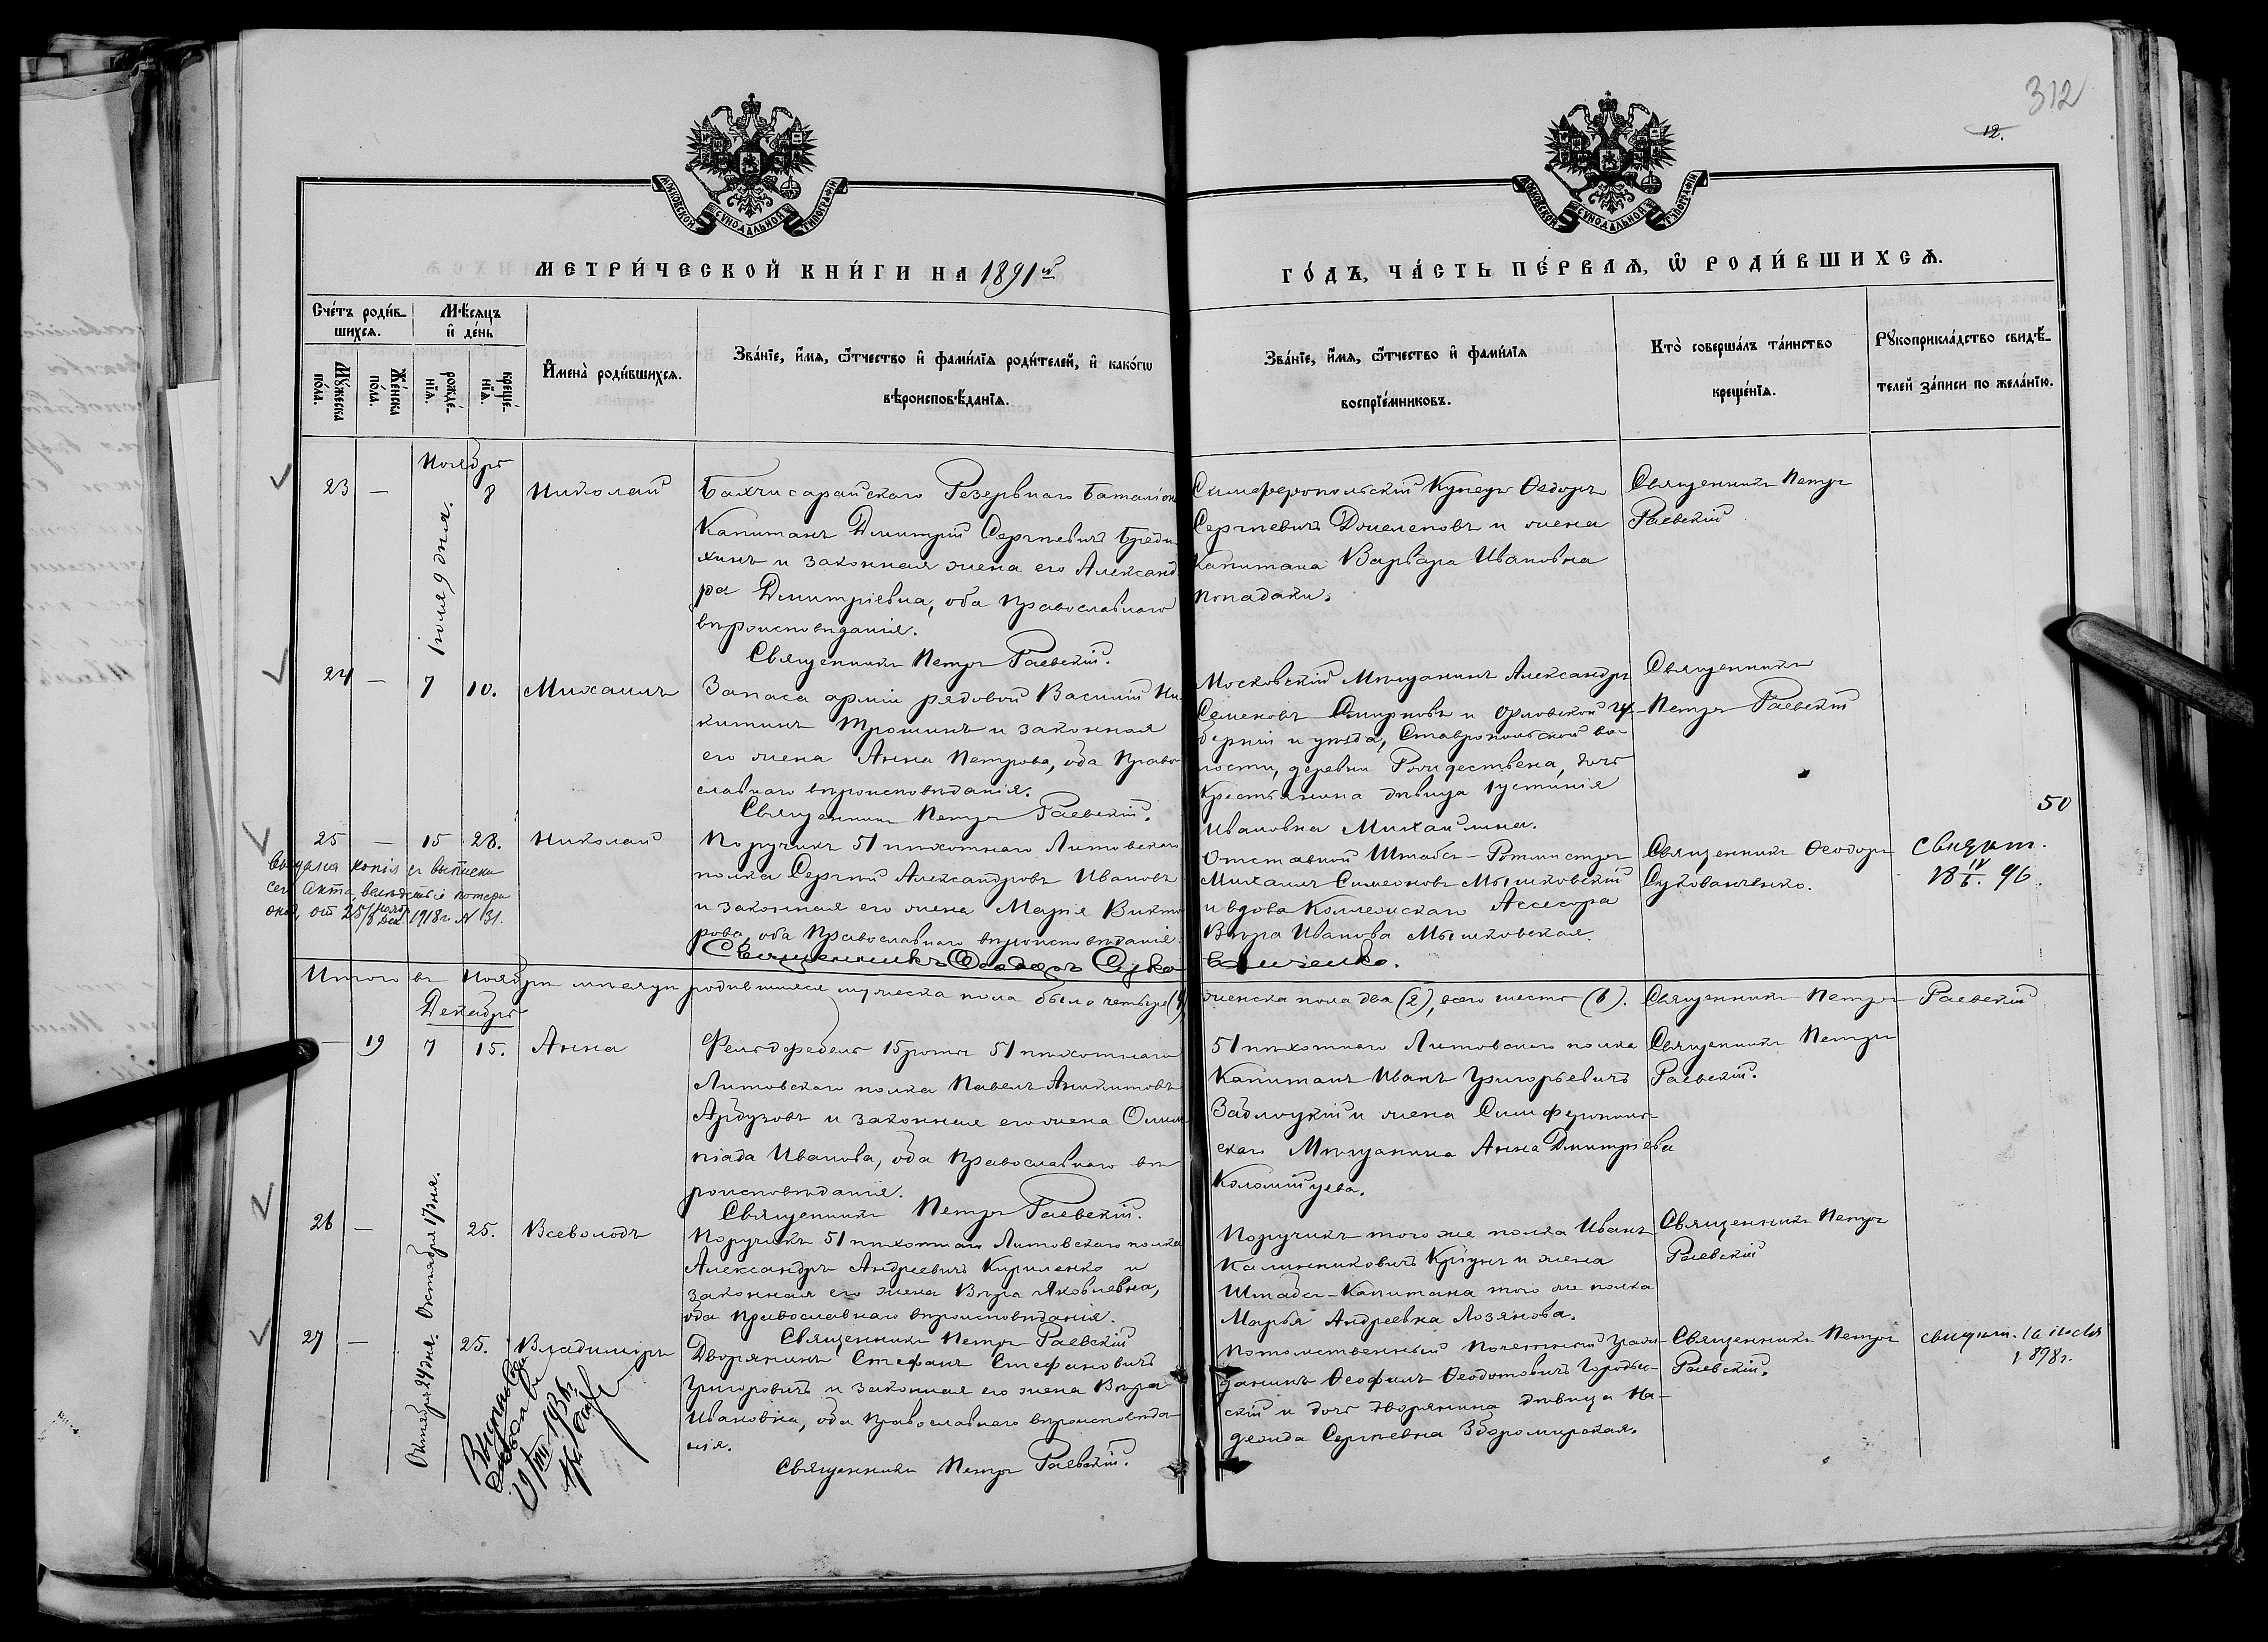 312
12.
МОСКОВСКОЙ СѴНОДАЛЬНОЙ ТИПОГРАФІИ
МОСКОВСКОЙ СѴНОДАЛЬНОЙ ТИПОГРАФІИ
МЕТРИ́ЧЕСКОЙ КНИ́ГИ НА 1891й
ГО́ДЪ, ЧА́СТЬ ПЕ́РВАѦ, Ѿ РОДИ́ВШИХСѦ.
Сче́тъ роди́в-
шихсѧ.
Мꙋ́жеска по́ла.
Же́нска по́ла.
Мѣ́сѧцъ
и҆ де́нь
рожде́-
нїѧ.
креще́-
нїѧ.
И҆мена̀ роди́вшихсѧ.
Зва́нїе, и҆́мѧ, ѻ҆́тчество и҆ фами́лїѧ роди́телей, и҆ како́гѡ
вѣроисповѣ́данїѧ.
Зва́нїе, и҆́мѧ, ѻ҆́тчество и҆ фами́лїѧ
воспрїе́мниковъ.
Кто̀ соверша́лъ та́инство
креще́нїѧ.
Рꙋкоприкла́дство свидѣ́-
телей за́писи по жела́нїю.
Ноябрь
23 — Іюля 9 дня. 8 Николай
Бахчисарайскаго Резервнаго Баталіон
Капитанъ Димитрій Сергѣевичъ Бреди-
хинъ и законная жена его Александ-
ра Димитріевна, оба Православнаго
вѣроисповѣданія.
Священникъ Петръ Раевскій.
Симферопольскій Купецъ Ѳедоръ
Сергѣевичъ и жена
Капитана Варвара Ивановна
Попадаки.
Священникъ Петръ
Раевскій
24 — 7 10. Михаилъ
Запаса арміи рядовой Василій Ни-
китинъ Трошинъ и законная
его жена Анна Петрова, оба Право-
славнаго вѣроисповѣданія.
Священникъ Петръ Раевскій.
Московскій Мѣщанинъ Александръ
Семеновъ Смирновъ и Орловской Гу-
берніи и уѣзда, Ставропольской во-
лости, деревни Рождествена, дочь
Крестьянина дѣвица Іустинія
Ивановна Михайлина.
Священникъ
Петръ Раевскій
50
25 — 15 28. Николай
Выдана копія съ выписки
сего акта, вслѣдствіе потери
оной, от 25 нояб/8 дек. 1918 г. № 31.
Поручикъ 51 пѣхотнаго Литовскаго
полка Сергѣй Александровъ Ивановъ
и законная его жена Марія Викто-
рова, оба Православнаго вѣроисповѣданія.
Священникъ Ѳеодоръ Суко
ванченко.
Отставной Штабсъ-Ротмистръ
Михаилъ Симеоновъ Мышковскій
и вдова Коллежскаго Ассесора
Вѣра Иванова Мышковская.
Священникъ Ѳеодоръ
Сукованченко.
Свидѣт.
18 IV 96
Итого въ Ноябрѣ мѣсяцѣ родившихся мужеска пола было четыре (4)
женска пола два (2), всего шесть (6). Священникъ Петръ Раевскій
Декабрь
— 19 7 15. Анна
Фельдфебель 15 роты 51 пѣхотнаго
Литовскаго полка Павелъ Аникитовъ
Арбузовъ и законная его жена Олим-
піада Иванова, оба Православнаго вѣ-
роисповѣданія.
Священникъ Петръ Раевскій.
51 пѣхотнаго Литовскаго полка
Капитанъ Иванъ Григорьевичъ
Заблоцкій и жена Симферополь-
скаго Мѣщанина Анна Димитріева
Коломійцева.
Священникъ Петръ
Раевскій.
26 — Октября 17 дня. 25. Всеволодъ
Поручикъ 51 пѣхотнаго Литовскаго полка
Александръ Андреевичъ Кириленко и
законная его жена Вѣра Яковлевна,
оба Православнаго вѣроисповѣданія.
Священникъ Петръ Раевскій
Поручикъ того же полка Иванъ
Калинниковичъ и жена
Штабсъ-Капитана того же полка
Марья Андреевна Лозянова.
Священникъ Петръ
Раевскій
27 — Октября 24 дня. 25. Владимиръ
Дворянинъ Стефанъ Стефановичъ
Григоровичъ и законная его жена Вѣра
Ивановна, оба Православнаго вѣроисповѣда-
нія.
Священникъ Петръ Раевскій.
Потомственный Почетный Граж-
данинъ Ѳеофилъ Ѳеодотовичъ Городы-
скій и дочь дворянина дѣвица На-
дежда Сергѣевна Зборомирская.
Священникъ Петръ
Раевскій.
свидѣт. 16
1898 г.
VIII 1936